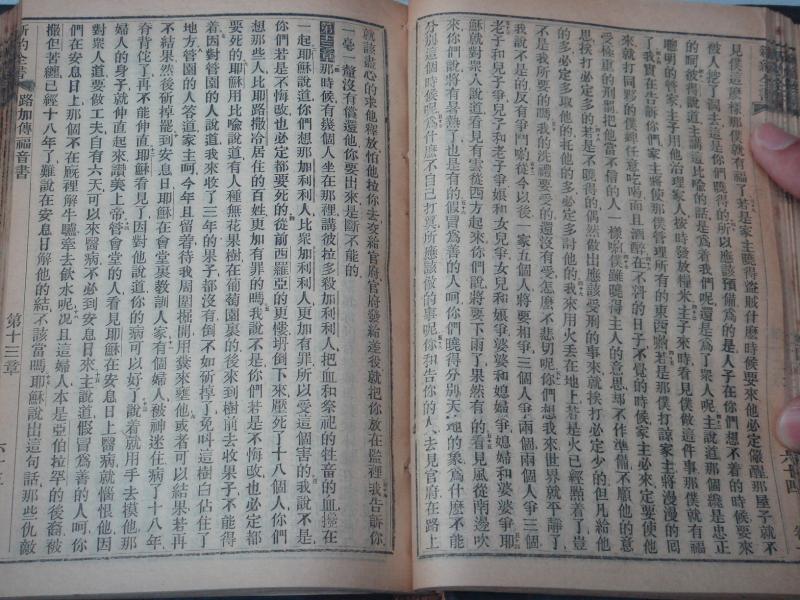 見僕這麼樣那僕就有福了若是家主曉得盜賊什麼時候要來他必定儆醒那屋子就不
被人挖了洞去這是你們曉得的所以應該預備為的是人子在你們想不着的時候要來
的呵彼得說道主講這比喻的話是為着我們呢還是為了眾人呢主說道那個纔是忠正
聰明的管家主子用他治理家人按時發放糧米主子來時看見僕做這件事那僕就有福
了我實在告訴你們家主將使那僕管理所有的東西嚛若是那僕打諒家主將漫漫的回
來就打同夥的僕婢任意吃喝而且酒醉在不料的日子不覺的時候家主必來定要使他
受極重的刑罰把他當不信的人一樣喲僕雖曉得主人的意思却不作準備不順他的意
思挨打必定多的若是不曉得的偶然做出應該受刑的事來就挨打必定少的但凡給他
的多必定多取他的托他的多必定多討他的我來用火丟在地上若是火已經點着了豈
不是我所要的嗎我的洗禮要受的還沒有受怎麼不悲切呢你們想我來世界就平靜了
我說不是的反有爭鬥喲從今以後一家五個人將要相爭三個人爭兩個兩個人爭三個
老子和兒子爭兒子和老子爭娘和女兒爭女兒和娘爭婆婆和媳婦爭媳婦和婆婆爭耶
穌就對眾人說道看見有雲從西方起來你們說將要下雨了果然有的看見風從南邊吹
來你們說將有暑熱了也是有的假冒為善的人呵你們曉得分別天地的象為什麼不能
分別這個時候呢為什麼不自己打算所應該做的事呢你和告你的人去見官府在路上
新約全書
路加傳福音書
第十三章
就該盡心的求他釋放怕他拉你去交給官府官府發給差役就把你放在監裡我告訴你
一毫一釐沒有償還他你要出來是斷不能的
第十三章那時候有幾個人坐在那裡講彼拉多殺加利利人把血和祭祀的牲畜的血攙在
一起耶穌說道你們想那加利利人比眾加利利人更加有罪所以受這個害的我說不是
你們若是不悔改也必定都要死的從前西羅亞的更樓坍倒下來壓死了十八個人你們
想那些人比耶路撒冷居住的百姓更加有罪的嗎我說不是你們若是不悔改也必定都
要死的耶穌用比喻說道有人種無花果樹在葡萄園裏的後來到樹前去收果子不能得
着因對管園的人說道我來收了三年的果子都沒有倒不如斫掉了免叫這樹白佔住了
地方管園的人答道家主呵今年且留着待我周圍掘開用糞來壅他或者可以結果若再
不結果然後斫掉罷到安息日耶穌在會堂裏教訓人家有個婦人被神迷住病了十八年
脊背佗了再不能伸直耶穌看見了因對他說道你的病可以好了說着就用手去摸他那
婦人的身子就伸直起來讚美上帝管會堂的人看見耶穌在安息日上醫病就惱恨他因
對眾人道要做工夫自有六天可以來醫病不必到安息日來主說道假冒為善的人呵你
們在安息日上那個不在廐裡解牛驢牽去飲水呢況且這婦人本是亞伯拉罕的後裔被
撒但苦纏已經十八年了難說在安息日解他的結不該當嗎耶穌說出這句話那些仇敵